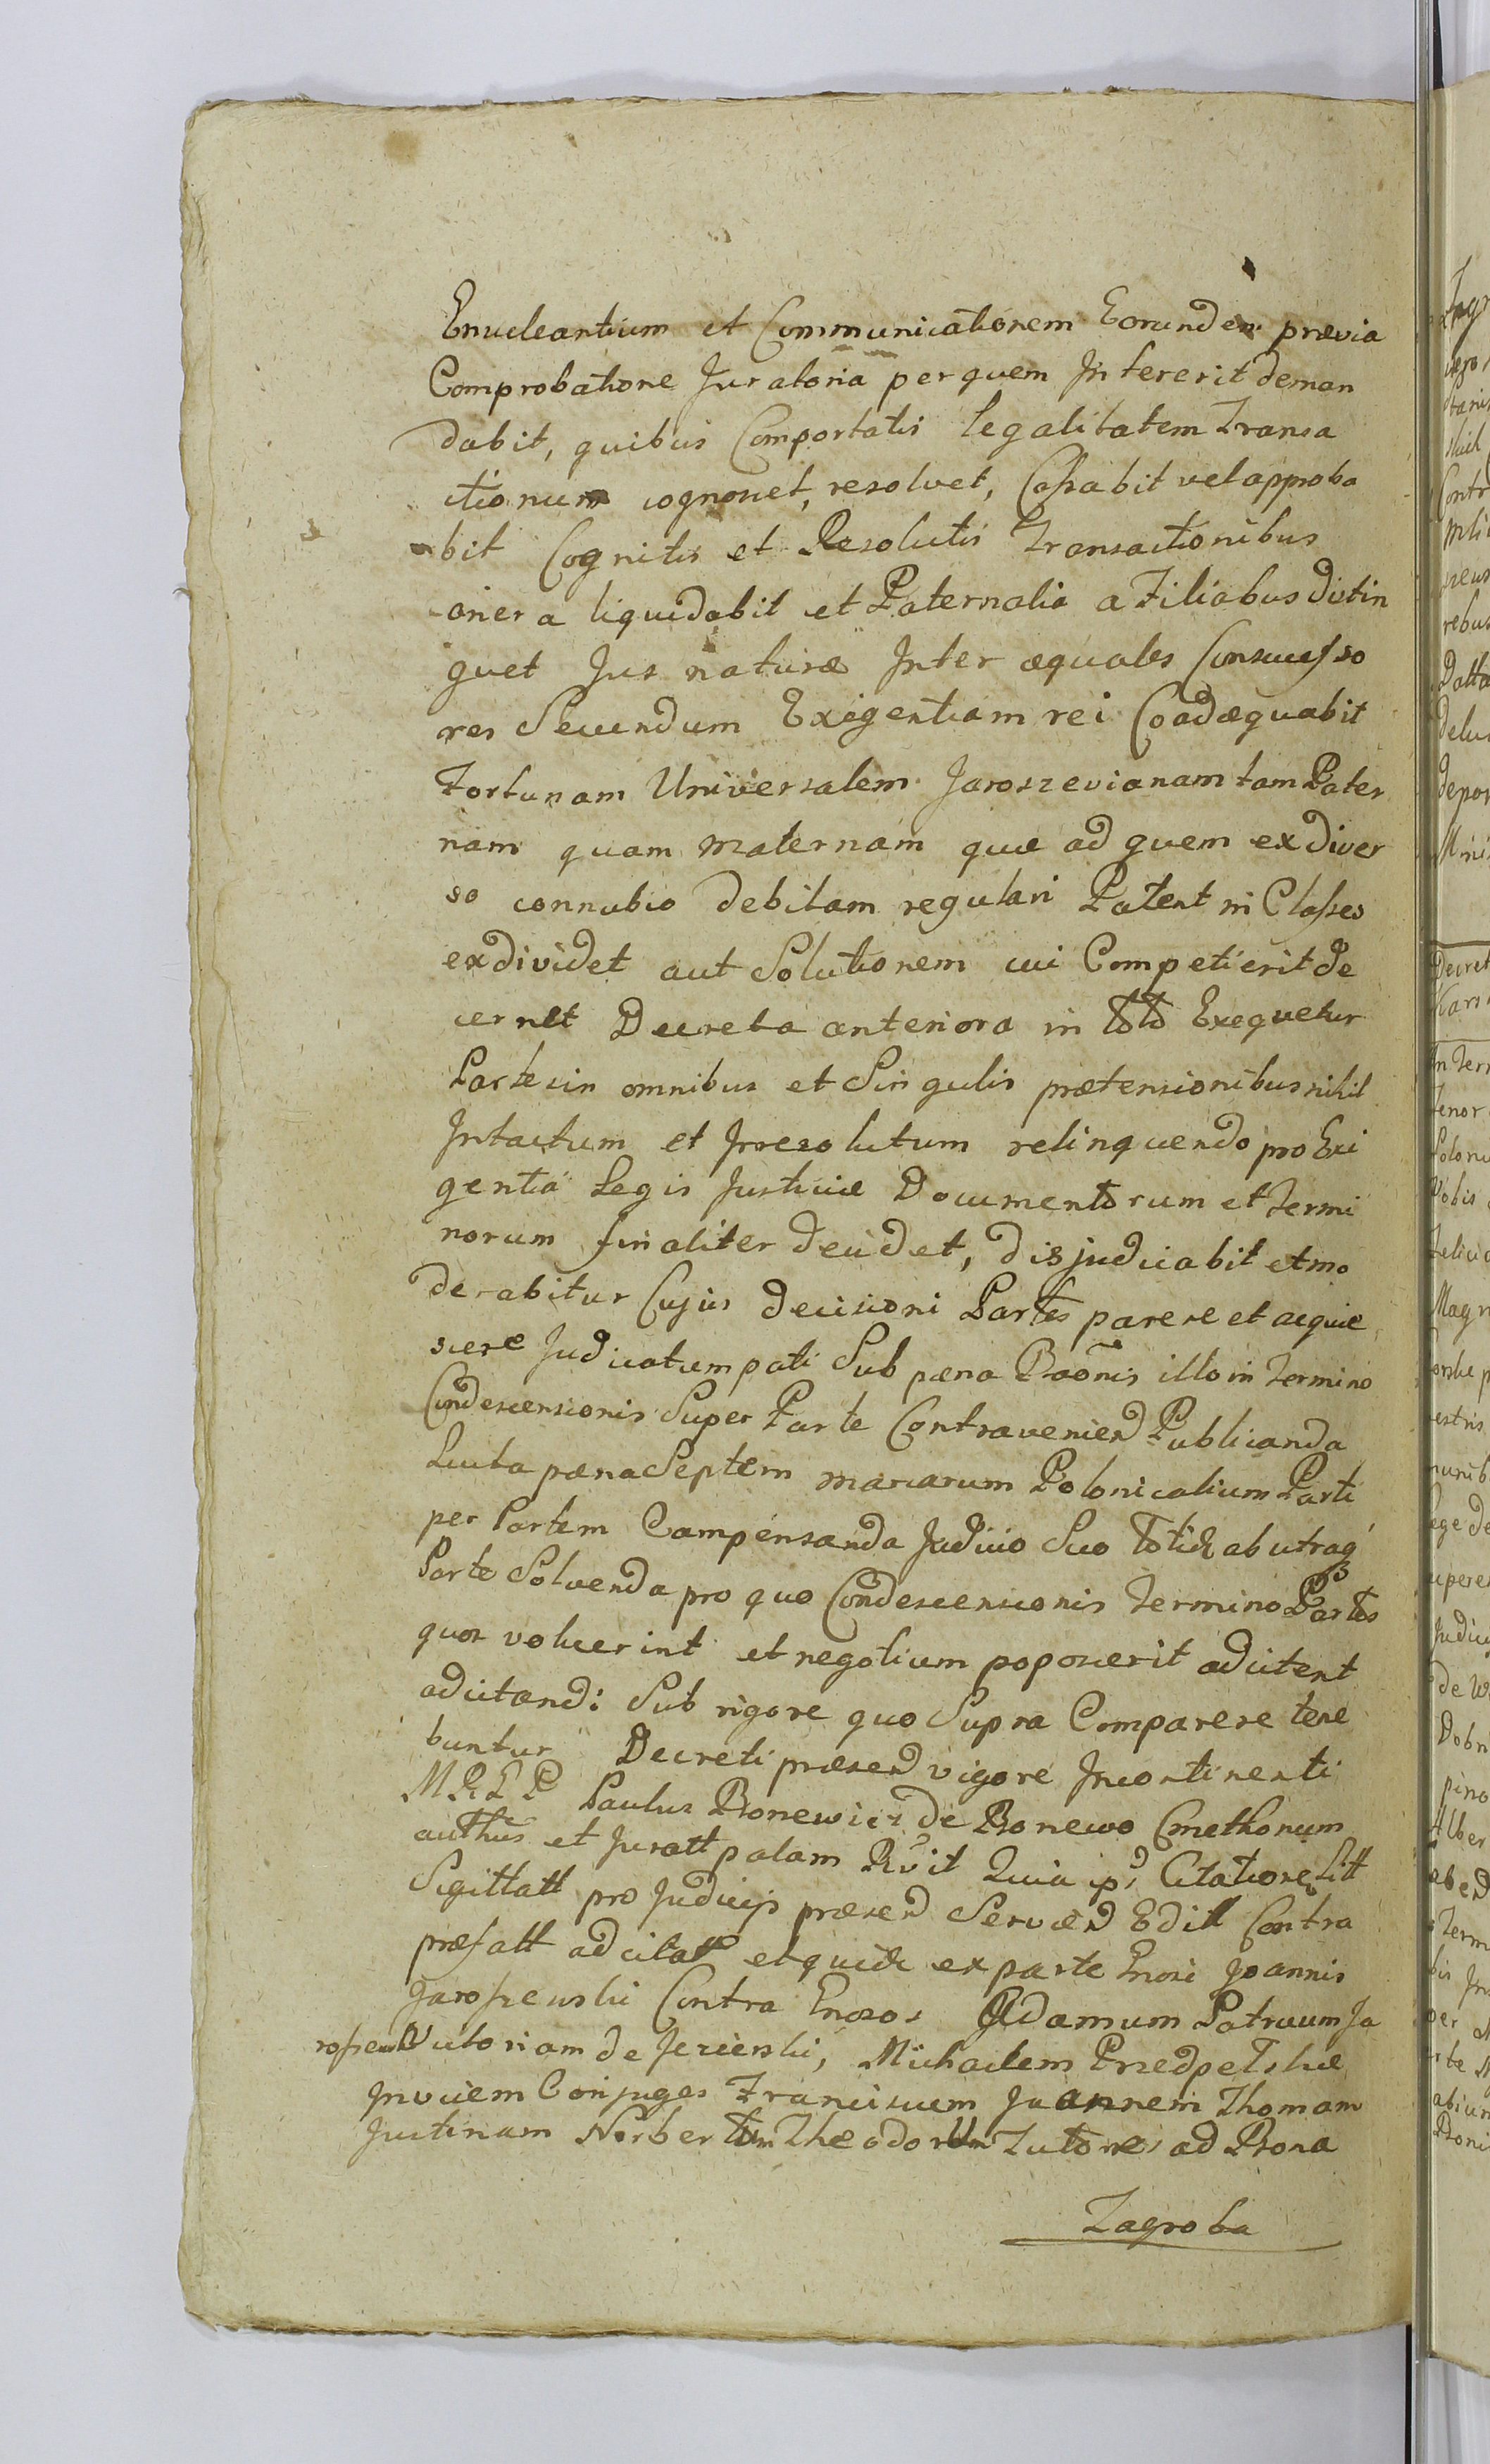 Enucleantium et Communicationem Eorundem prævia
Comprobatione Juratoria per quem Intererit deman
dabit, quibus Comportatis legalitatem Transa
ctionum cognoscet, resolvet, Cassabit vel approba
bit Cognitis et Resolutis Transactionibus
onera liquidabit et Paternalia a Filiabus distin
guet Jus naturæ Inter æquales Consuccesso
res Secundum Exigentiam rei Coadæquabit
Fortunam Universalem Jaroszevianam tam Pater
nam quam maternam quæ ad quem ex diver
so connubio debitam regulari Patent in Classes
exdividet aut Solutionem cui Competierit de
cernet Decreta anteriora in toto Exequetur
Partes in omnibus et Singulis prætensionibus nihil
Intactum et Irresolutum relinquendo pro Exi
gentia Legis Justiciæ Documentorum et Termi
norum finaliter decidet, disjudicabit et mo
derabitur Cujus decisioni Partes parere et acquie
scere Judicatum pati Sub pæna Baonis illo in Termino
Condescensionis Super Parte Contraveniend Publicanda
Lucta pæna Septem marcarum Polonicalium Parti
per Partem Campensanda Judicio Suo totid ab utraq
Parte Solvenda pro quo Condescensionis Termino Partes
quos voluerint et negotium poposcerit adcitent
adcitandi Sub rigore quo Supra Comparere tene
buntur Decreti præsen vigore Incontinenti
M R L P Paulus Bonewicz de Bonewo Cmethonum
authus et Juratt palam Rvit Quia ips Citatione Litt
Sigittatt pro Judicijs præsen Servien Editt Contra
præfatt adcitatos et quidem ex parte Gnosi Joannis
Jaroszewski Contra Gnosos Adamum Patruum Ja
roszewski Victoriam de Jezierski, Michaelem Przedpełskie
Invicem Conjuges Franciscum Joannem Thomam
Justinam Norbertum Theodorum Tutores ad Bona
Zagroba